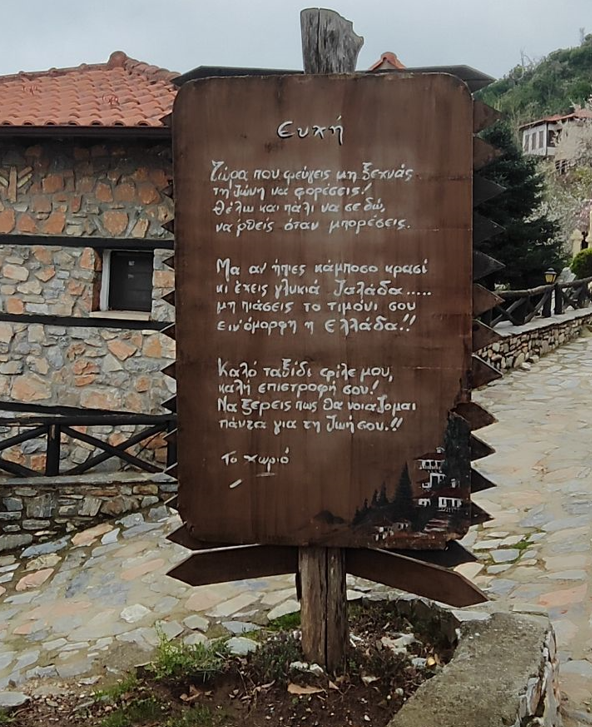 Ευχή
Τώρα που φεύγεις μη ξεχνάς
τη ζώνη να φορέσεις!
Θέλω και πάλι να σε δώ,
να ρθείς όταν μπορέσεις.
Μα αν ήπιες κάμποσο κρασί
κι έχεις γλυκιά ζαλάδα.....
μη πιάσεις το τιμόνι σου
ειν'όμορφη η Ελλάδα!!
Καλό ταξίδι φίλε μου,
καλή επιστροφή σου!
Να ξέρεις πως θα νοιάζομαι
πάντα για τη ζωή σου.!!
Το χωριό